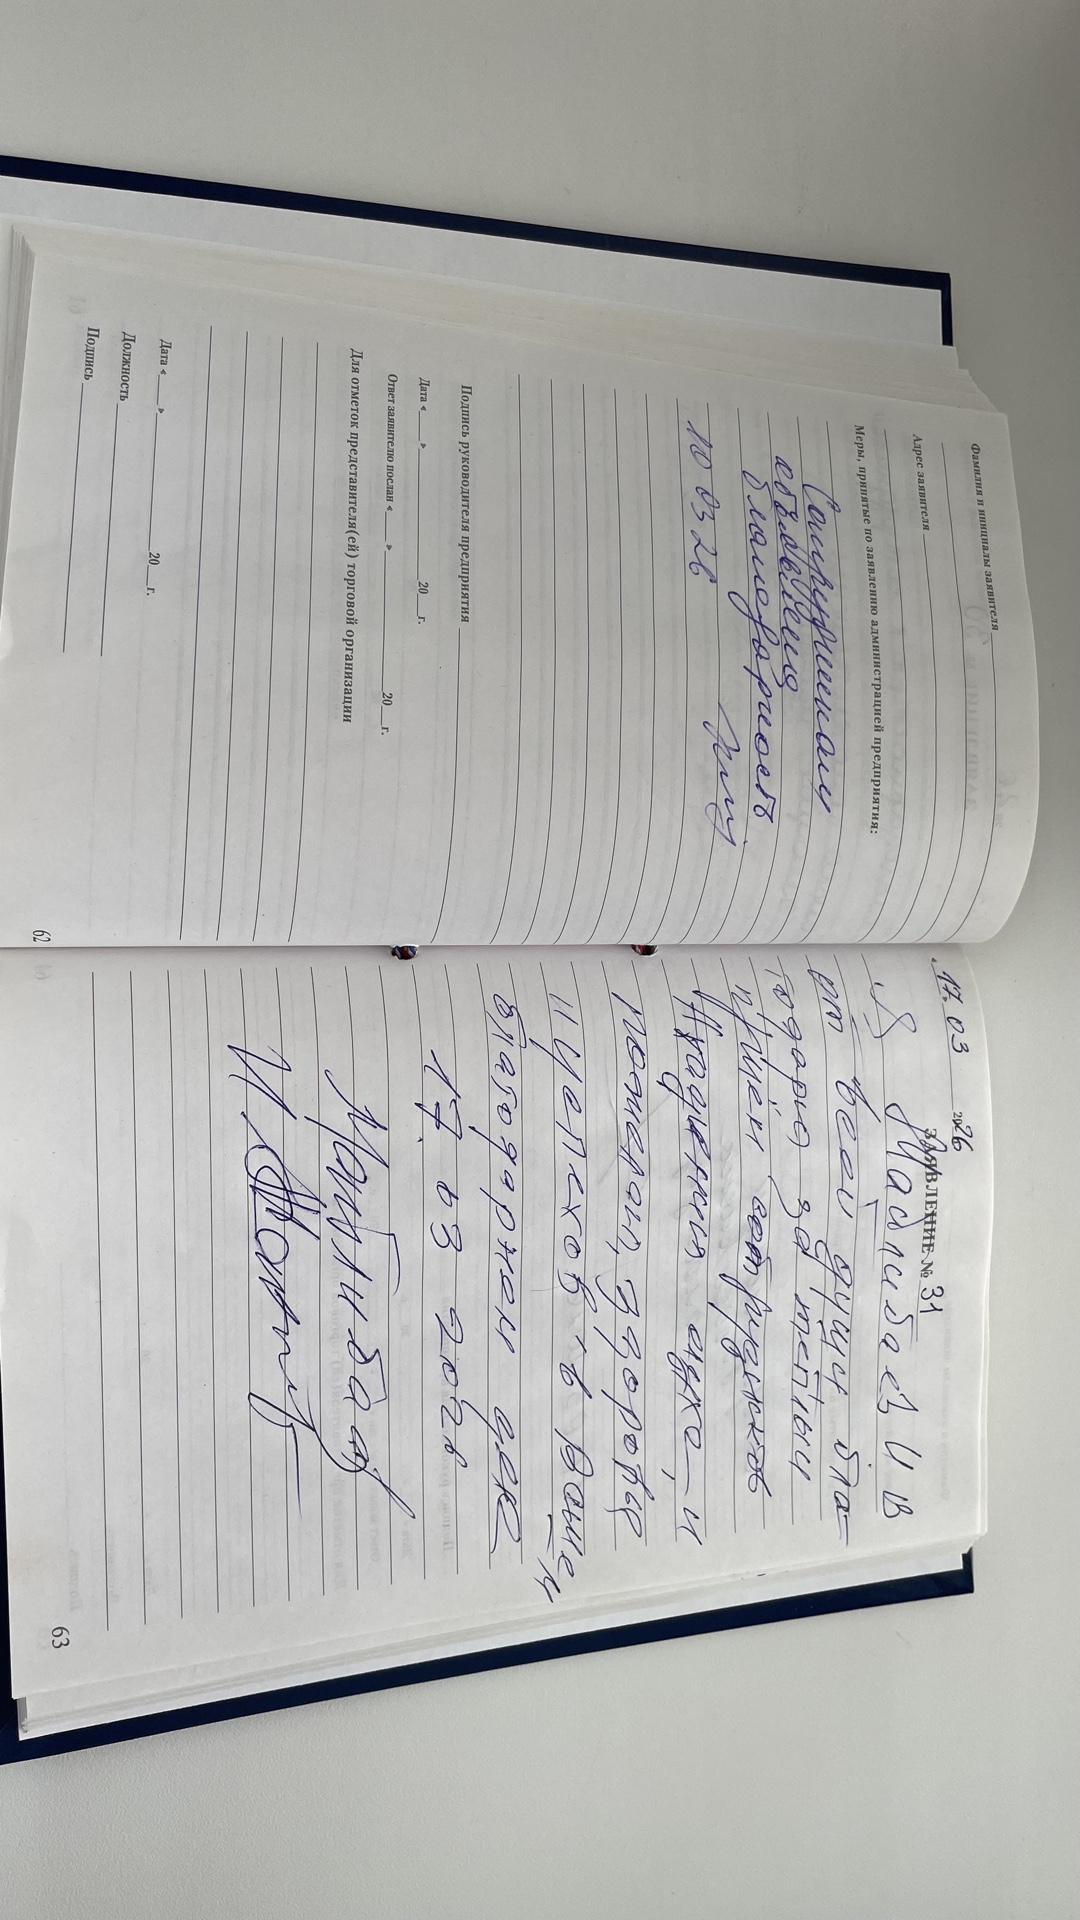 Фамилия и инициалы заявителя
Адрес заявителя
Меры, принятые по заявлению администрацией предприятия:
Сотрудникам
объявлена
благодарность
10 03 26
Подпись руководителя предприятия
Дата « » 20 г.
Ответ заявителю послан « » 20 г.
Для отметок представителя(ей) торговой организации
Дата « » 20 г.
Должность
Подпись
62
« 17. 03 2026
ЗАЯВЛЕНИЕ № 31
Я И В
от всей души бла-
годарю за тёплый
приём сотрудников
и
здоровья
и успехов в Ваше м
благодарном деле
17. 03 2026
63